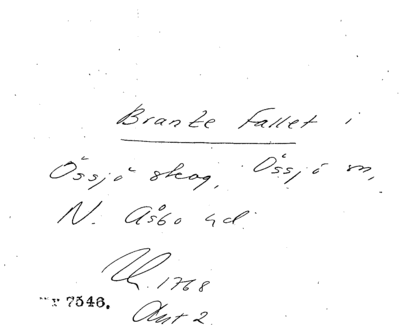 Brante Fallet i
Össjö skog, Össjö sn,
N. Åsbo hd.
1768
nr 7546.
Ant 2